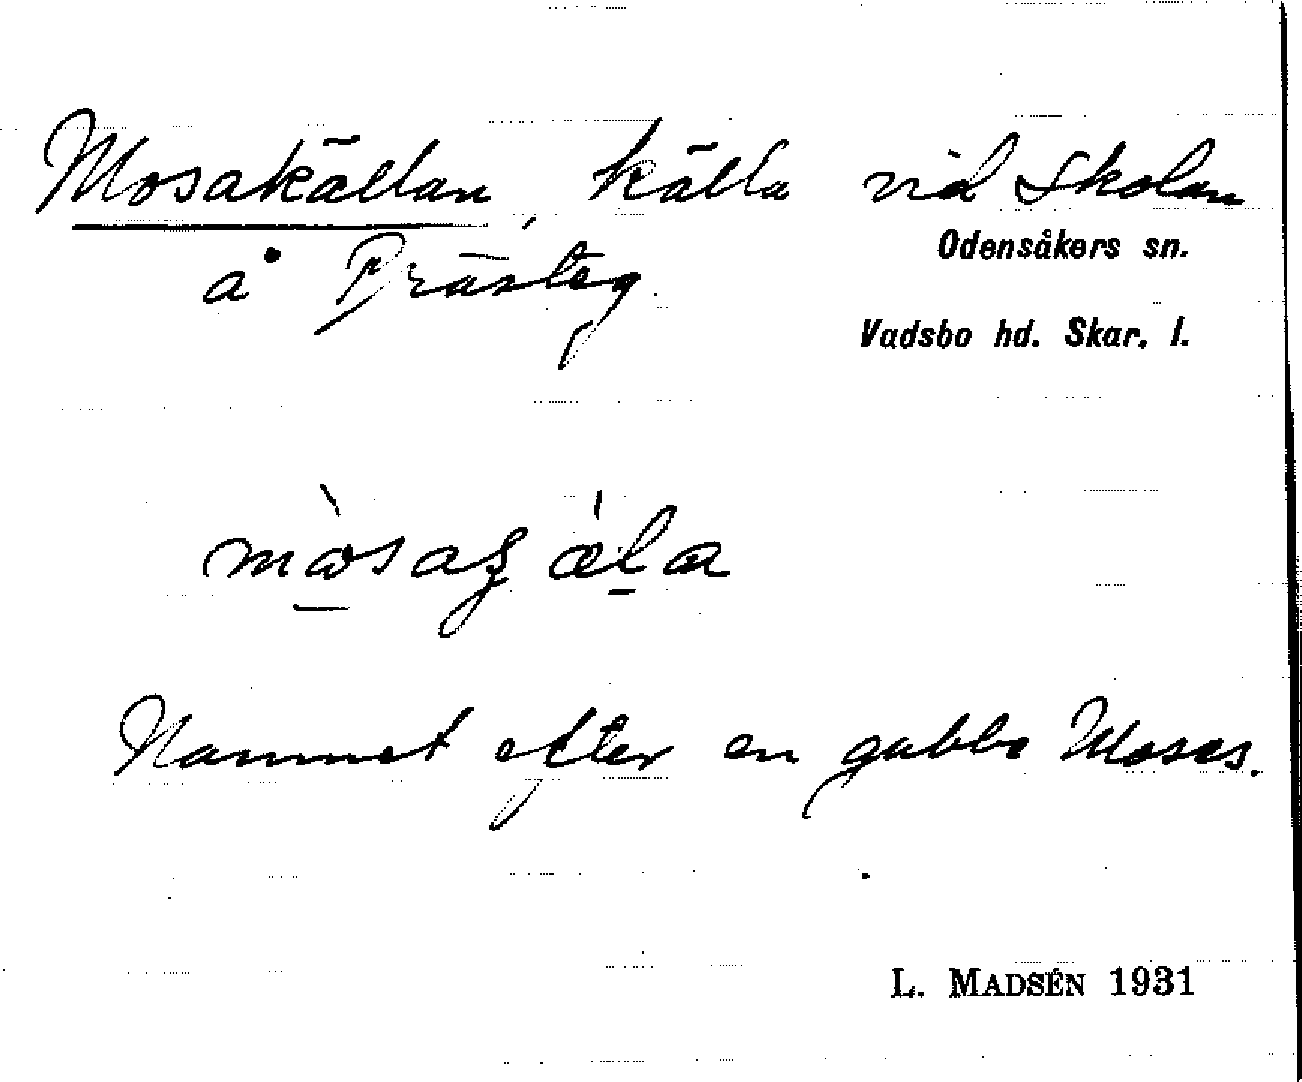 Mosakällan, källa vid skolan
Odensåkers sn.
å Prästeg.
Vadsbo hd. Skar. l.
Namnet efter en gubbe Moses.
L. MADSÉN 1931